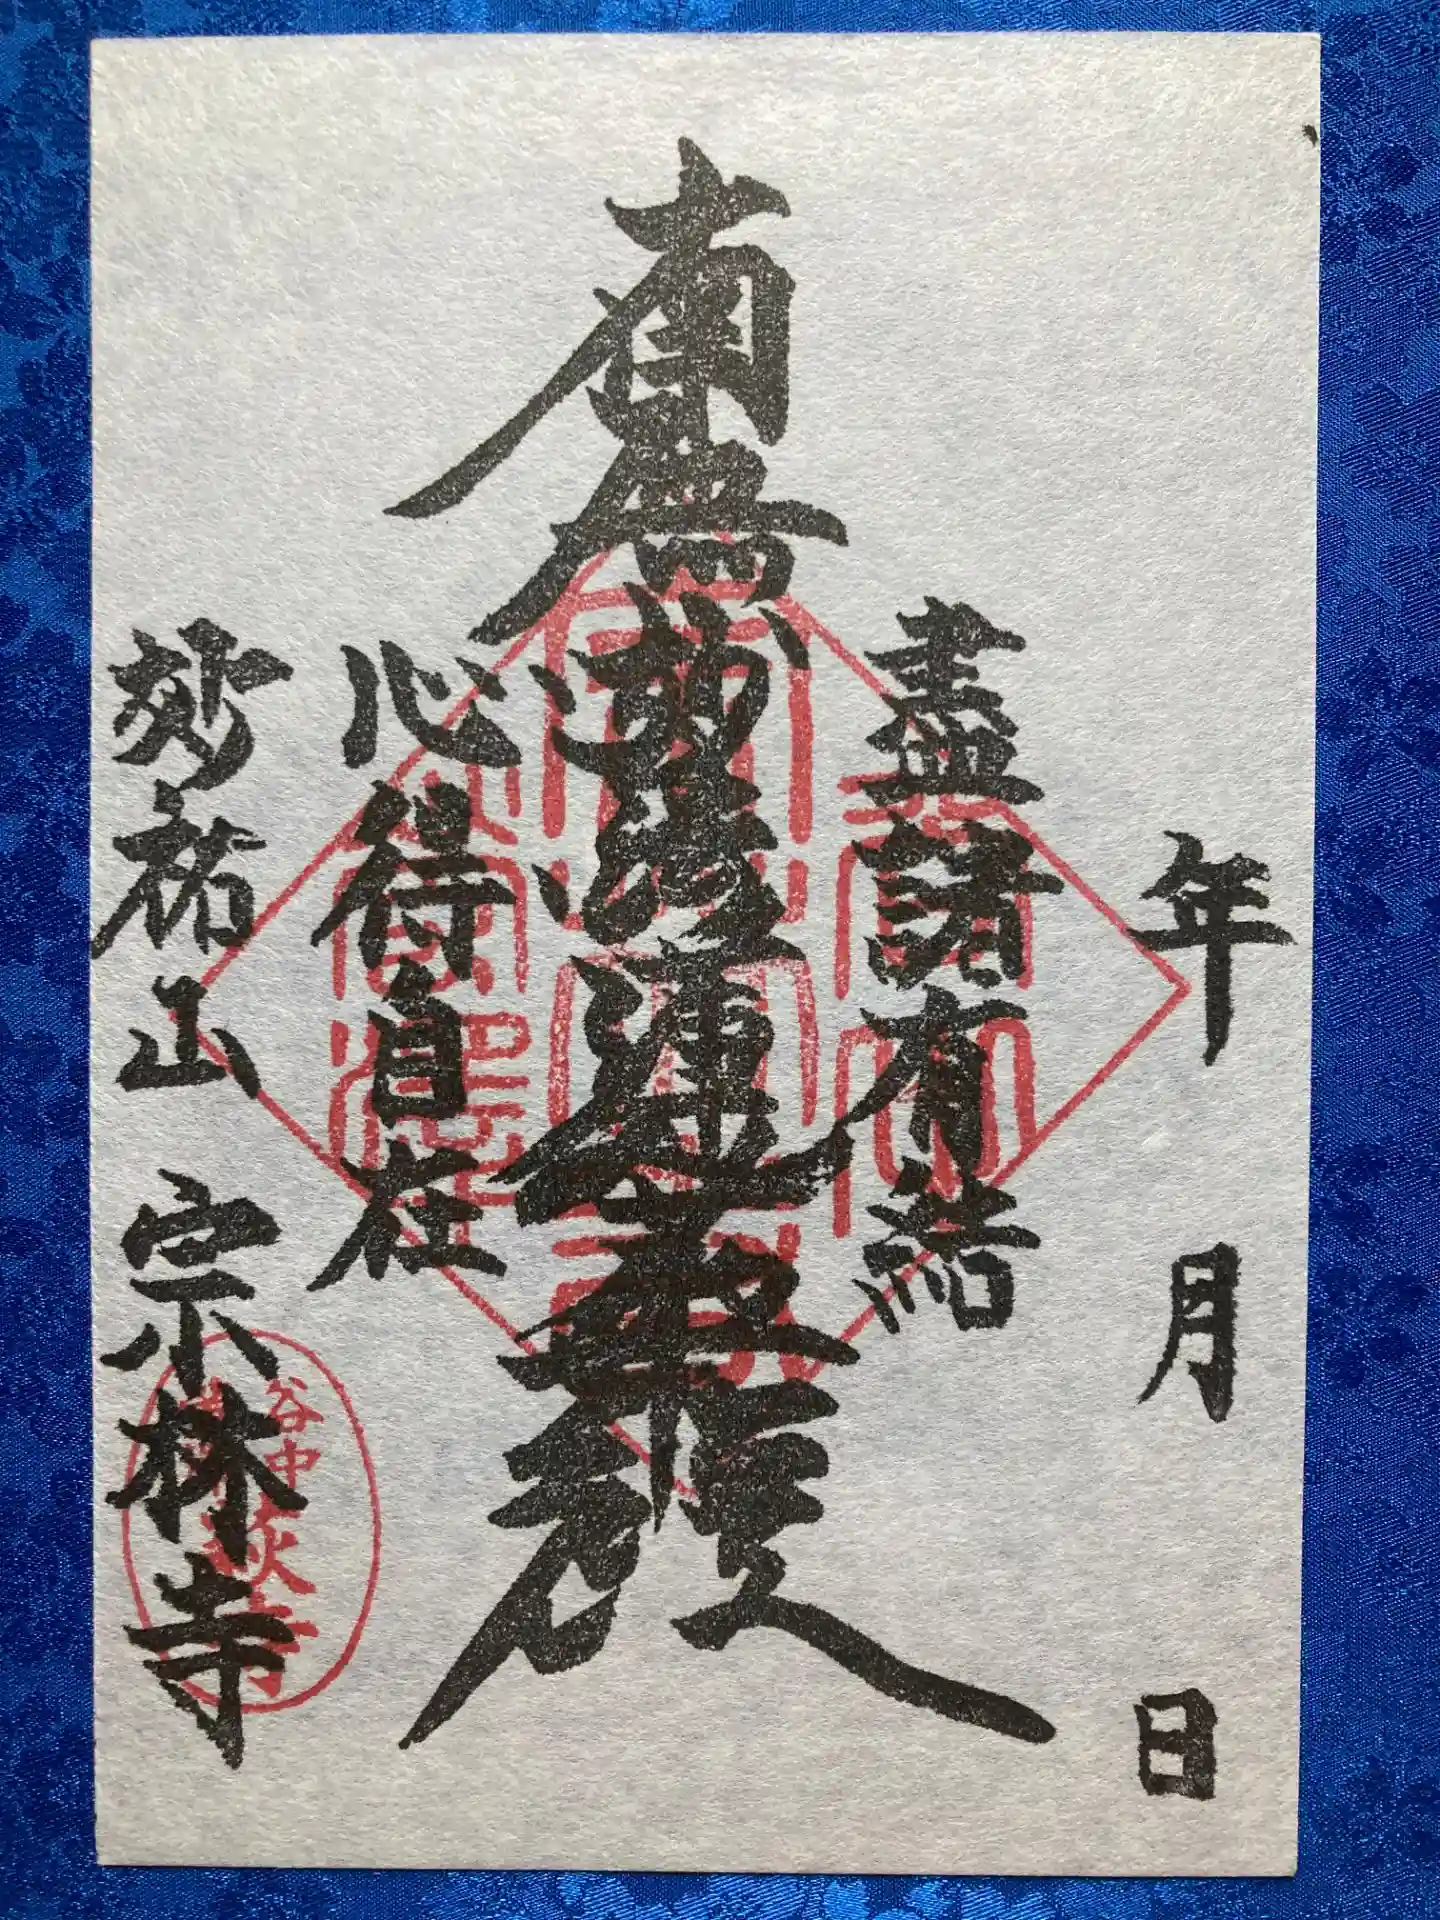 年 月 日
盡諸有結
南無妙法蓮華經
心得自在
妙祐山 宗林寺
谷中
萩寺